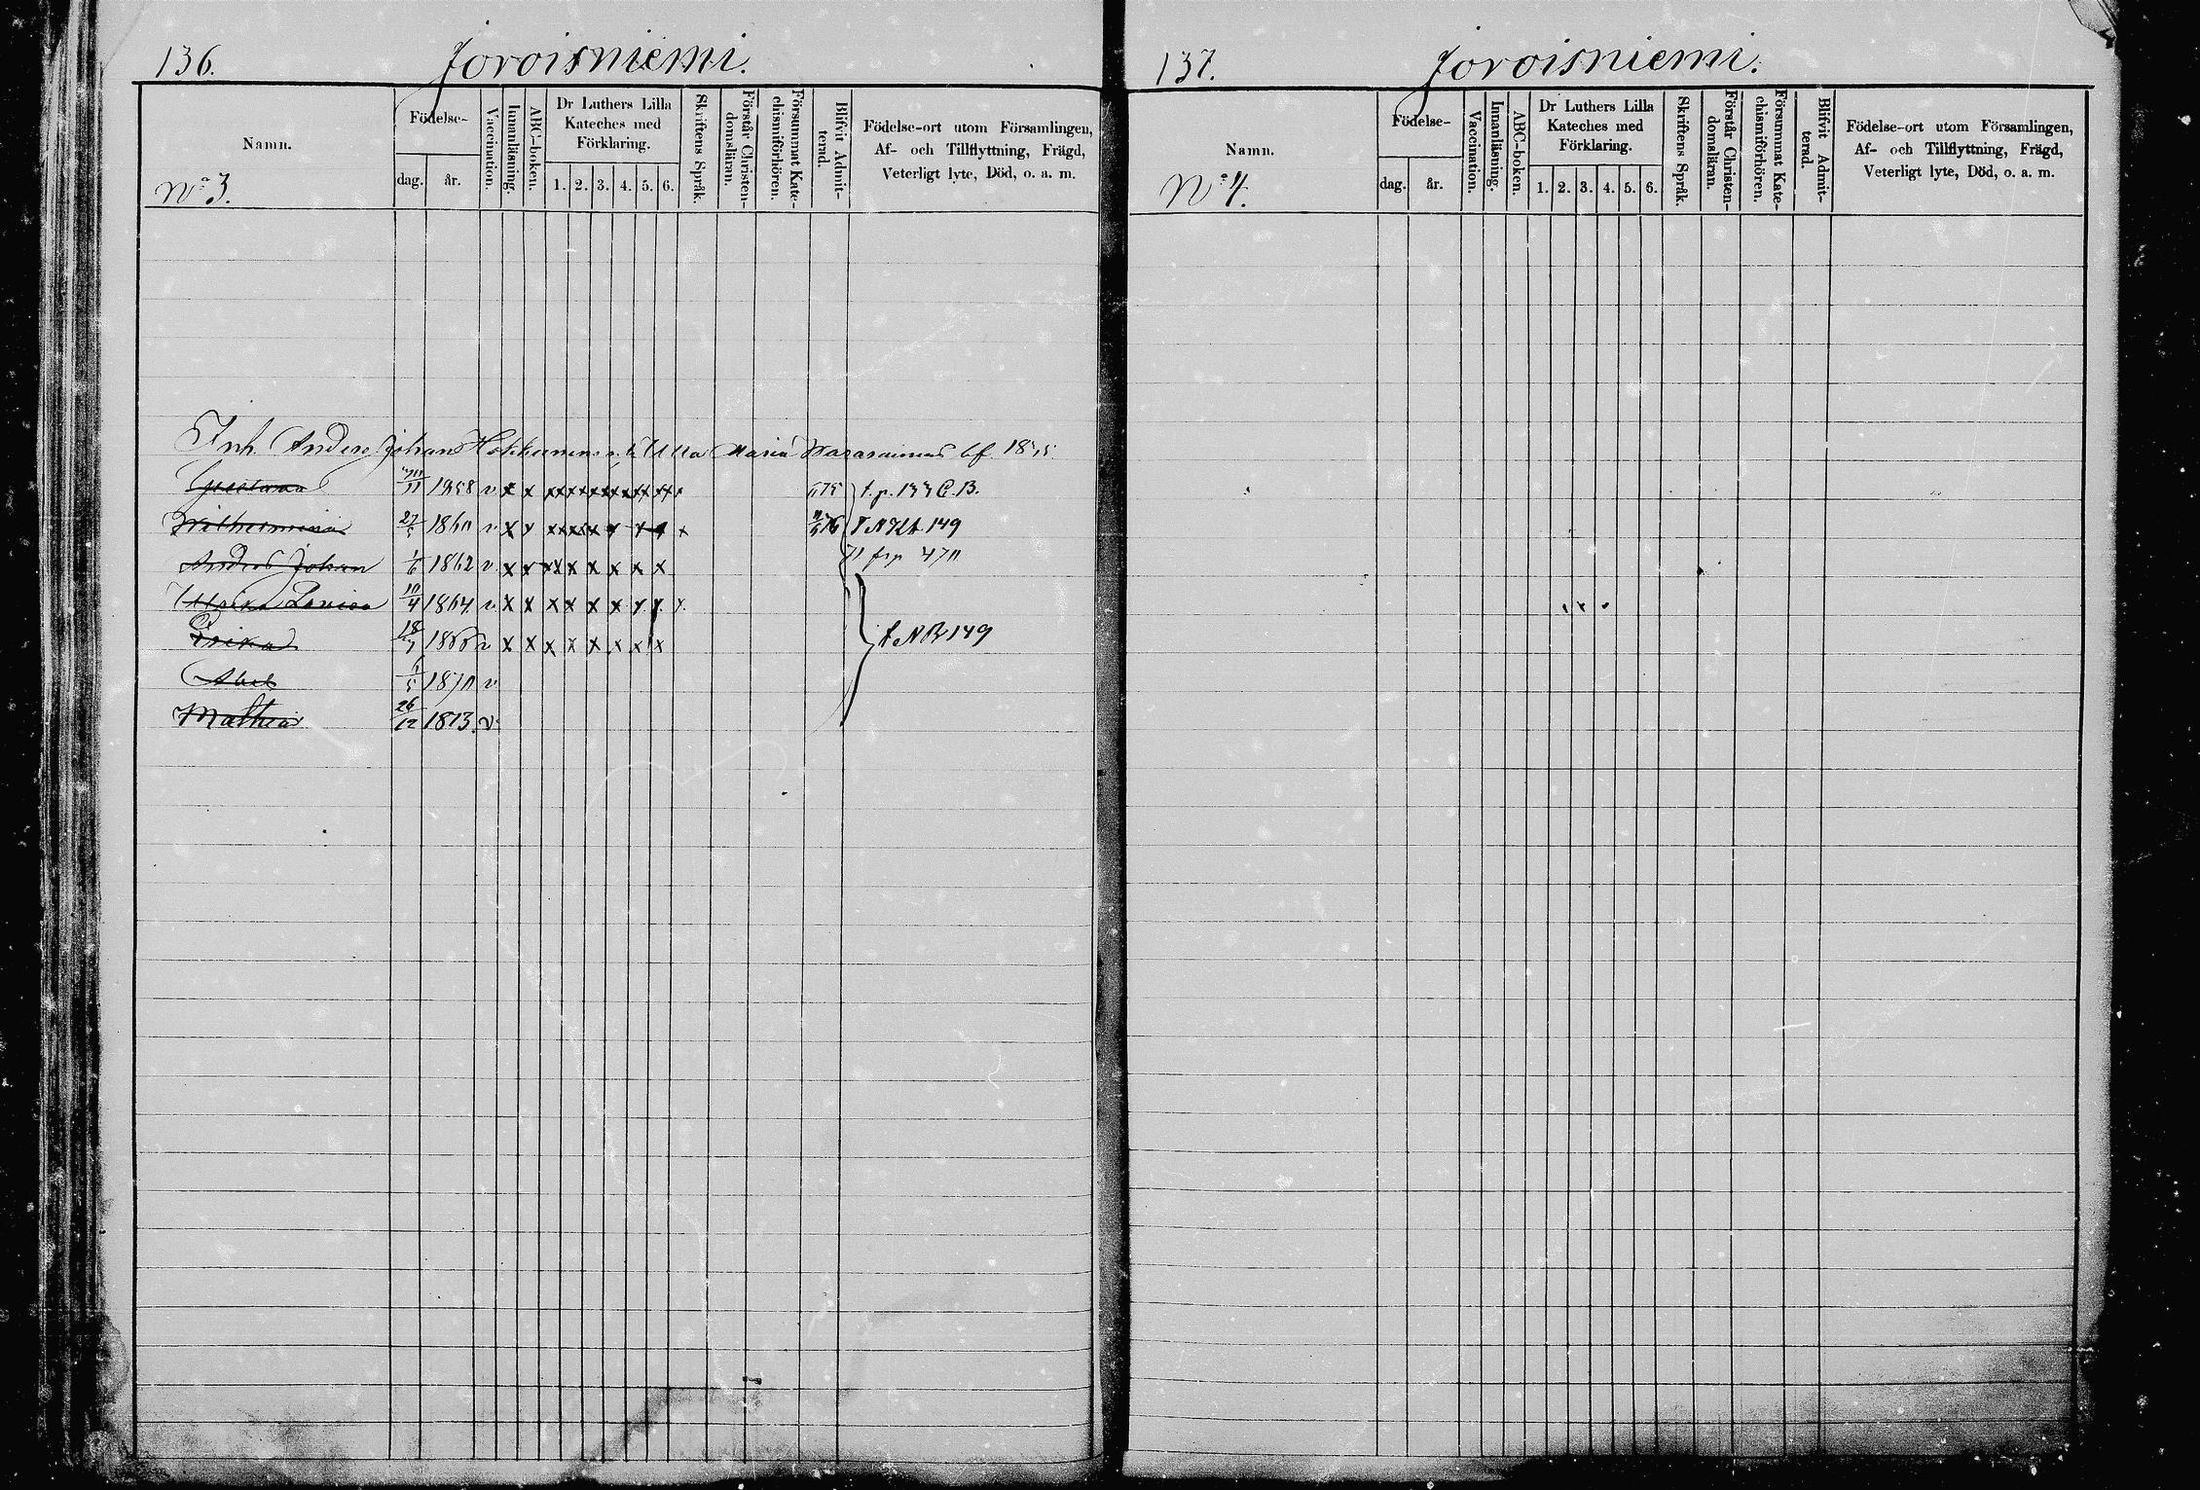 136. Joroisniemi.
Namn.
Födelse-
dag. år.
Vaccination.
Innanläsning.
ABC-boken.
Dr Luthers Lilla Kateches med Förklaring.
1. 2. 3. 4. 5. 6.
Skriftens Språk.
Förstår Christen-domsläran.
Försummat Kate-chismiförhören.
Blifvit Admit-terad.
Födelse-ort utom Församlingen,
Af- och Tillflyttning, Frägd,
Veterligt lyte, Död, o. a. m.
No 3.
Inh. Anders Johan Ulla Maria bf.
Gustava 11 1858 v x x
Wilhelmina 27 1860 v x x 149
Anders Johan 1/6 1862 v x x x x x x x x
Ulrika Lovisa 10/4 1864 v x x x x x x x x x
Erika 18 v x x x x x x x x 149
Abel 5 1870 v
Mathias 26/12 1873 v
137. Joroisniemi.
Namn.
Födelse-
dag. år.
Vaccination.
Innanläsning.
ABC-boken.
Dr Luthers Lilla Kateches med Förklaring.
1. 2. 3. 4. 5. 6.
Skriftens Språk.
Förstår Christen-domsläran.
Försummat Kate-chismiförhören.
Blifvit Admit-terad.
Födelse-ort utom Församlingen,
Af- och Tillflyttning, Frägd,
Veterligt lyte, Död, o. a. m.
No 4.